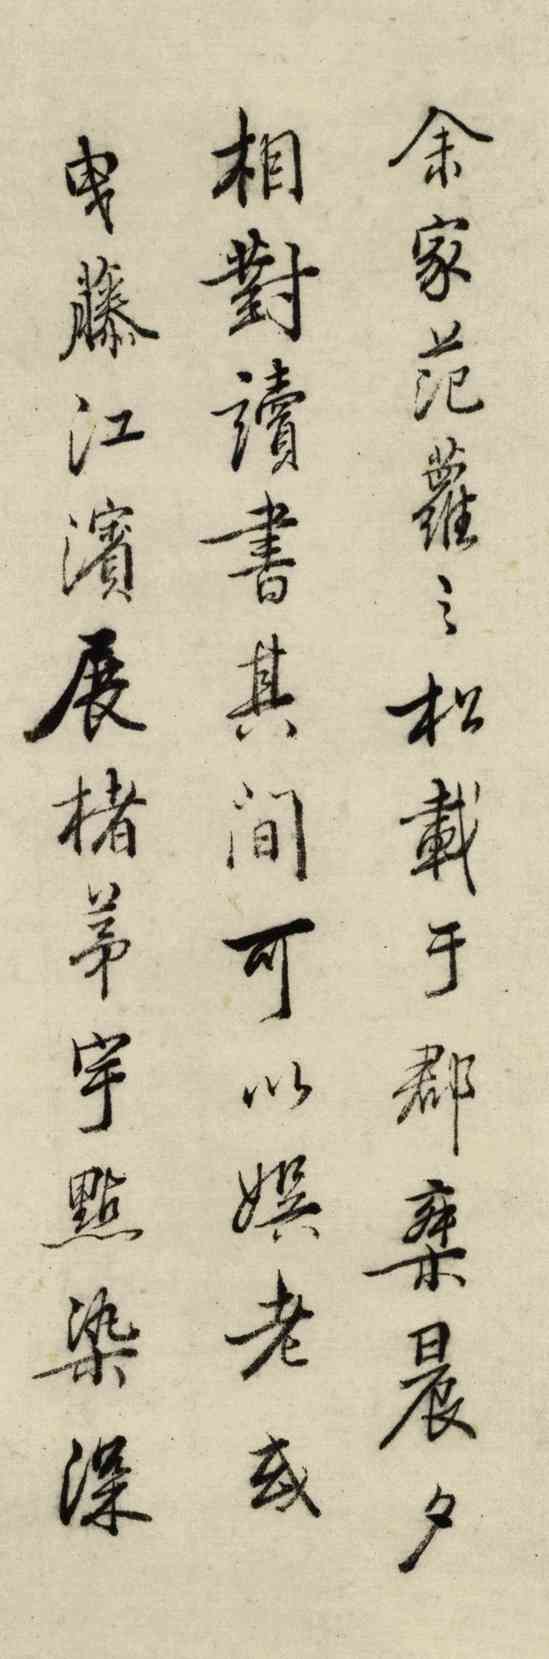 余家范蘿之松載于郡乘晨夕
相對讀書其間可以娛老或
曳藤江濱展楮茅宇點染深